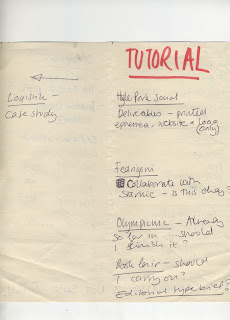 TUTORIAL
Logistik –
case study
Hyde Park Social
Deliverables – printed
ephemera, website + Logo
(only)
Collaborate with
– is this okay?
Olympiclinic – Already
so far in ... should
I finish it?
Book fair – should
I carry on?
Editorial type brief?